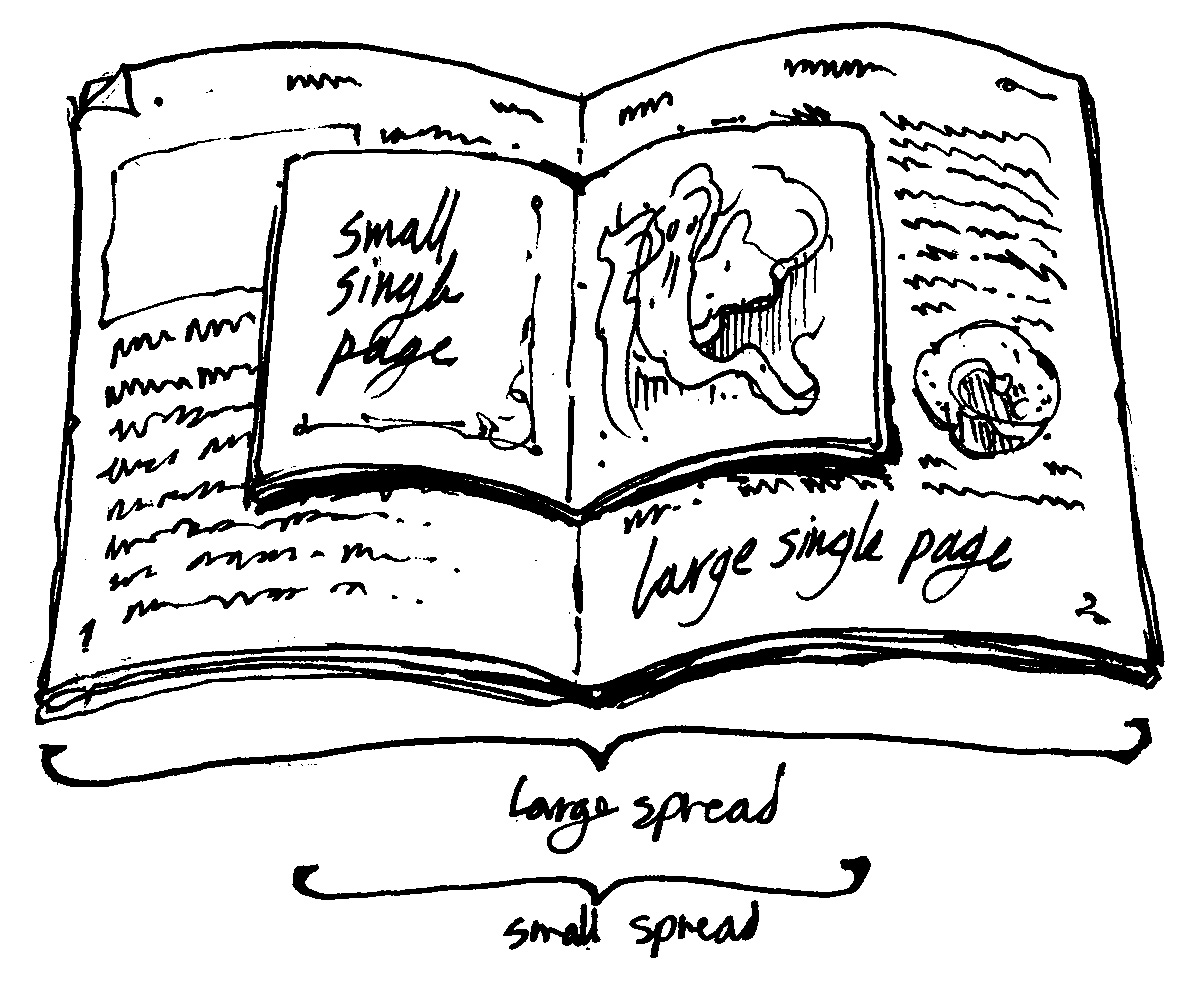 small
single
page
large single page
1
2
large spread
small spread